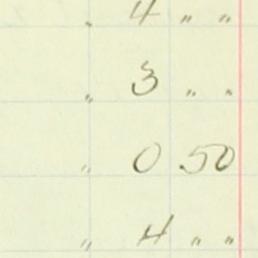 " 4 " "
" 3 " "
" 0 50
" 4 " "